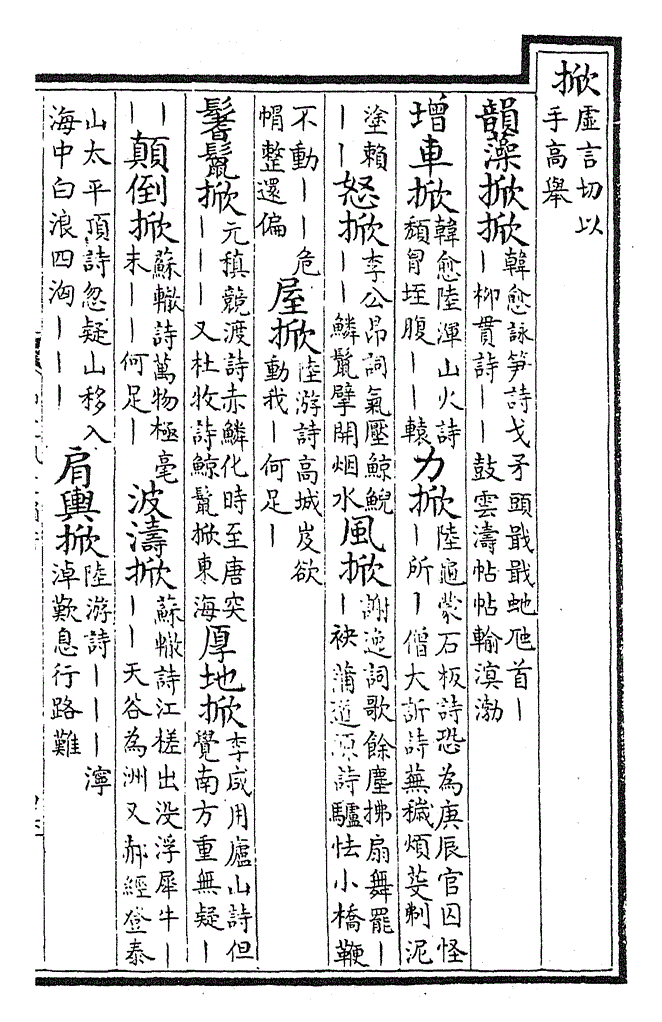 掀虛言切以手高舉
韻藻掀掀韓愈詠筍詩戈矛頭戢戢虵虺首丨丨柳貫詩丨丨鼓雲濤帖帖輸溟渤
增車掀韓愈陸渾山火詩頹胷垤腹丨丨轅力掀陸龜蒙石板詩恐為庚辰官囚怪丨所丨僧大訢詩蕪穢煩芟剃泥
塗賴丨丨怒掀李公昂詞氣壓鯨鯢丨丨鱗鬛擘開烟水風掀謝逸詞歌餘塵拂扇舞罷丨丨袂蒲道源詩驢怯小橋鞭
不動丨丨危帽整還偏屋掀陸游詩高城岌欲動我丨何足丨
鬐鬛掀元稹競渡詩赤鱗化時至唐突丨丨丨又杜牧詩鯨鬛掀東海厚地掀李咸用廬山詩但覺南方重無疑丨
丨丨顛倒掀蘇轍詩萬物極毫末丨丨丨何足丨波濤掀蘇轍詩江槎出没浮犀牛丨丨丨天谷為洲又郝經登泰
山太平頂詩忽疑山移入海中白浪四洶丨丨丨肩輿掀陸游詩丨丨丨濘淖歎息行路難